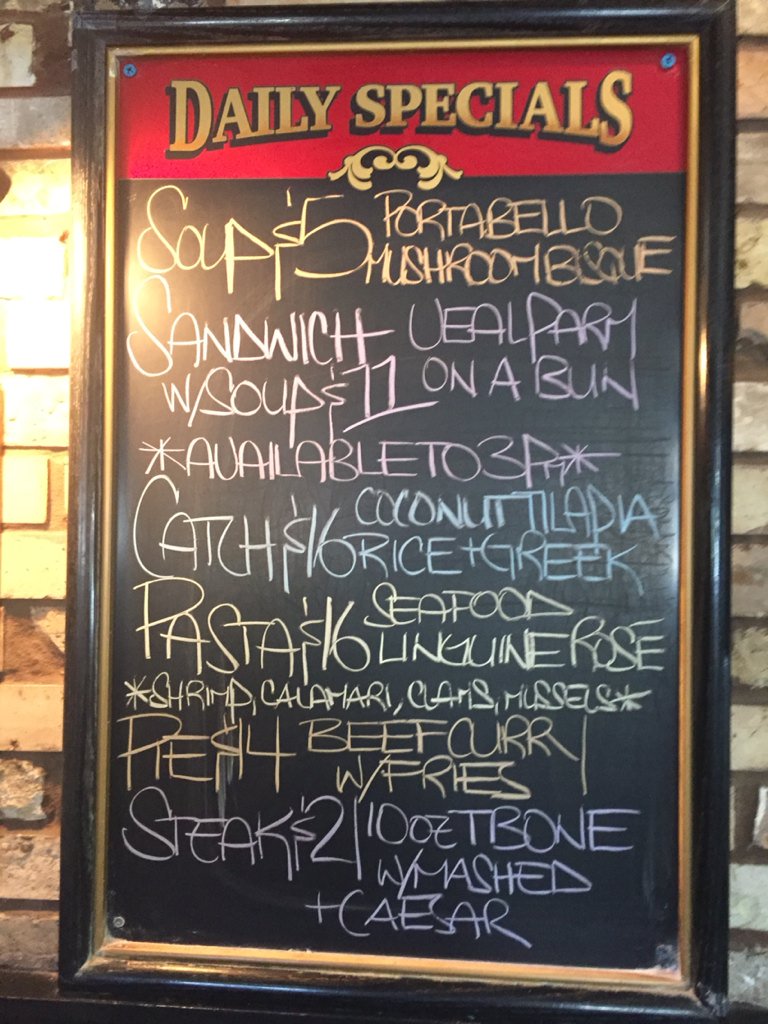 DAILY SPECIALS
SOUP $5 PORTABELLO
MUSHROOM BISQUE
SANDWICH VEAL PARM
W/SOUP $11 ON A BUN
*AVAILABLE TO 3PM*
CATCH $16 COCONUT TILAPIA
RICE + GREEK
PASTA $16 SEAFOOD
LINGUINE ROSE
*SHRIMP, CALAMARI, CLAMS, MUSSELS*
PIE $14 BEEF CURRY
W/FRIES
STEAK $21 10oz TBONE
W/MASHED
+CAESAR